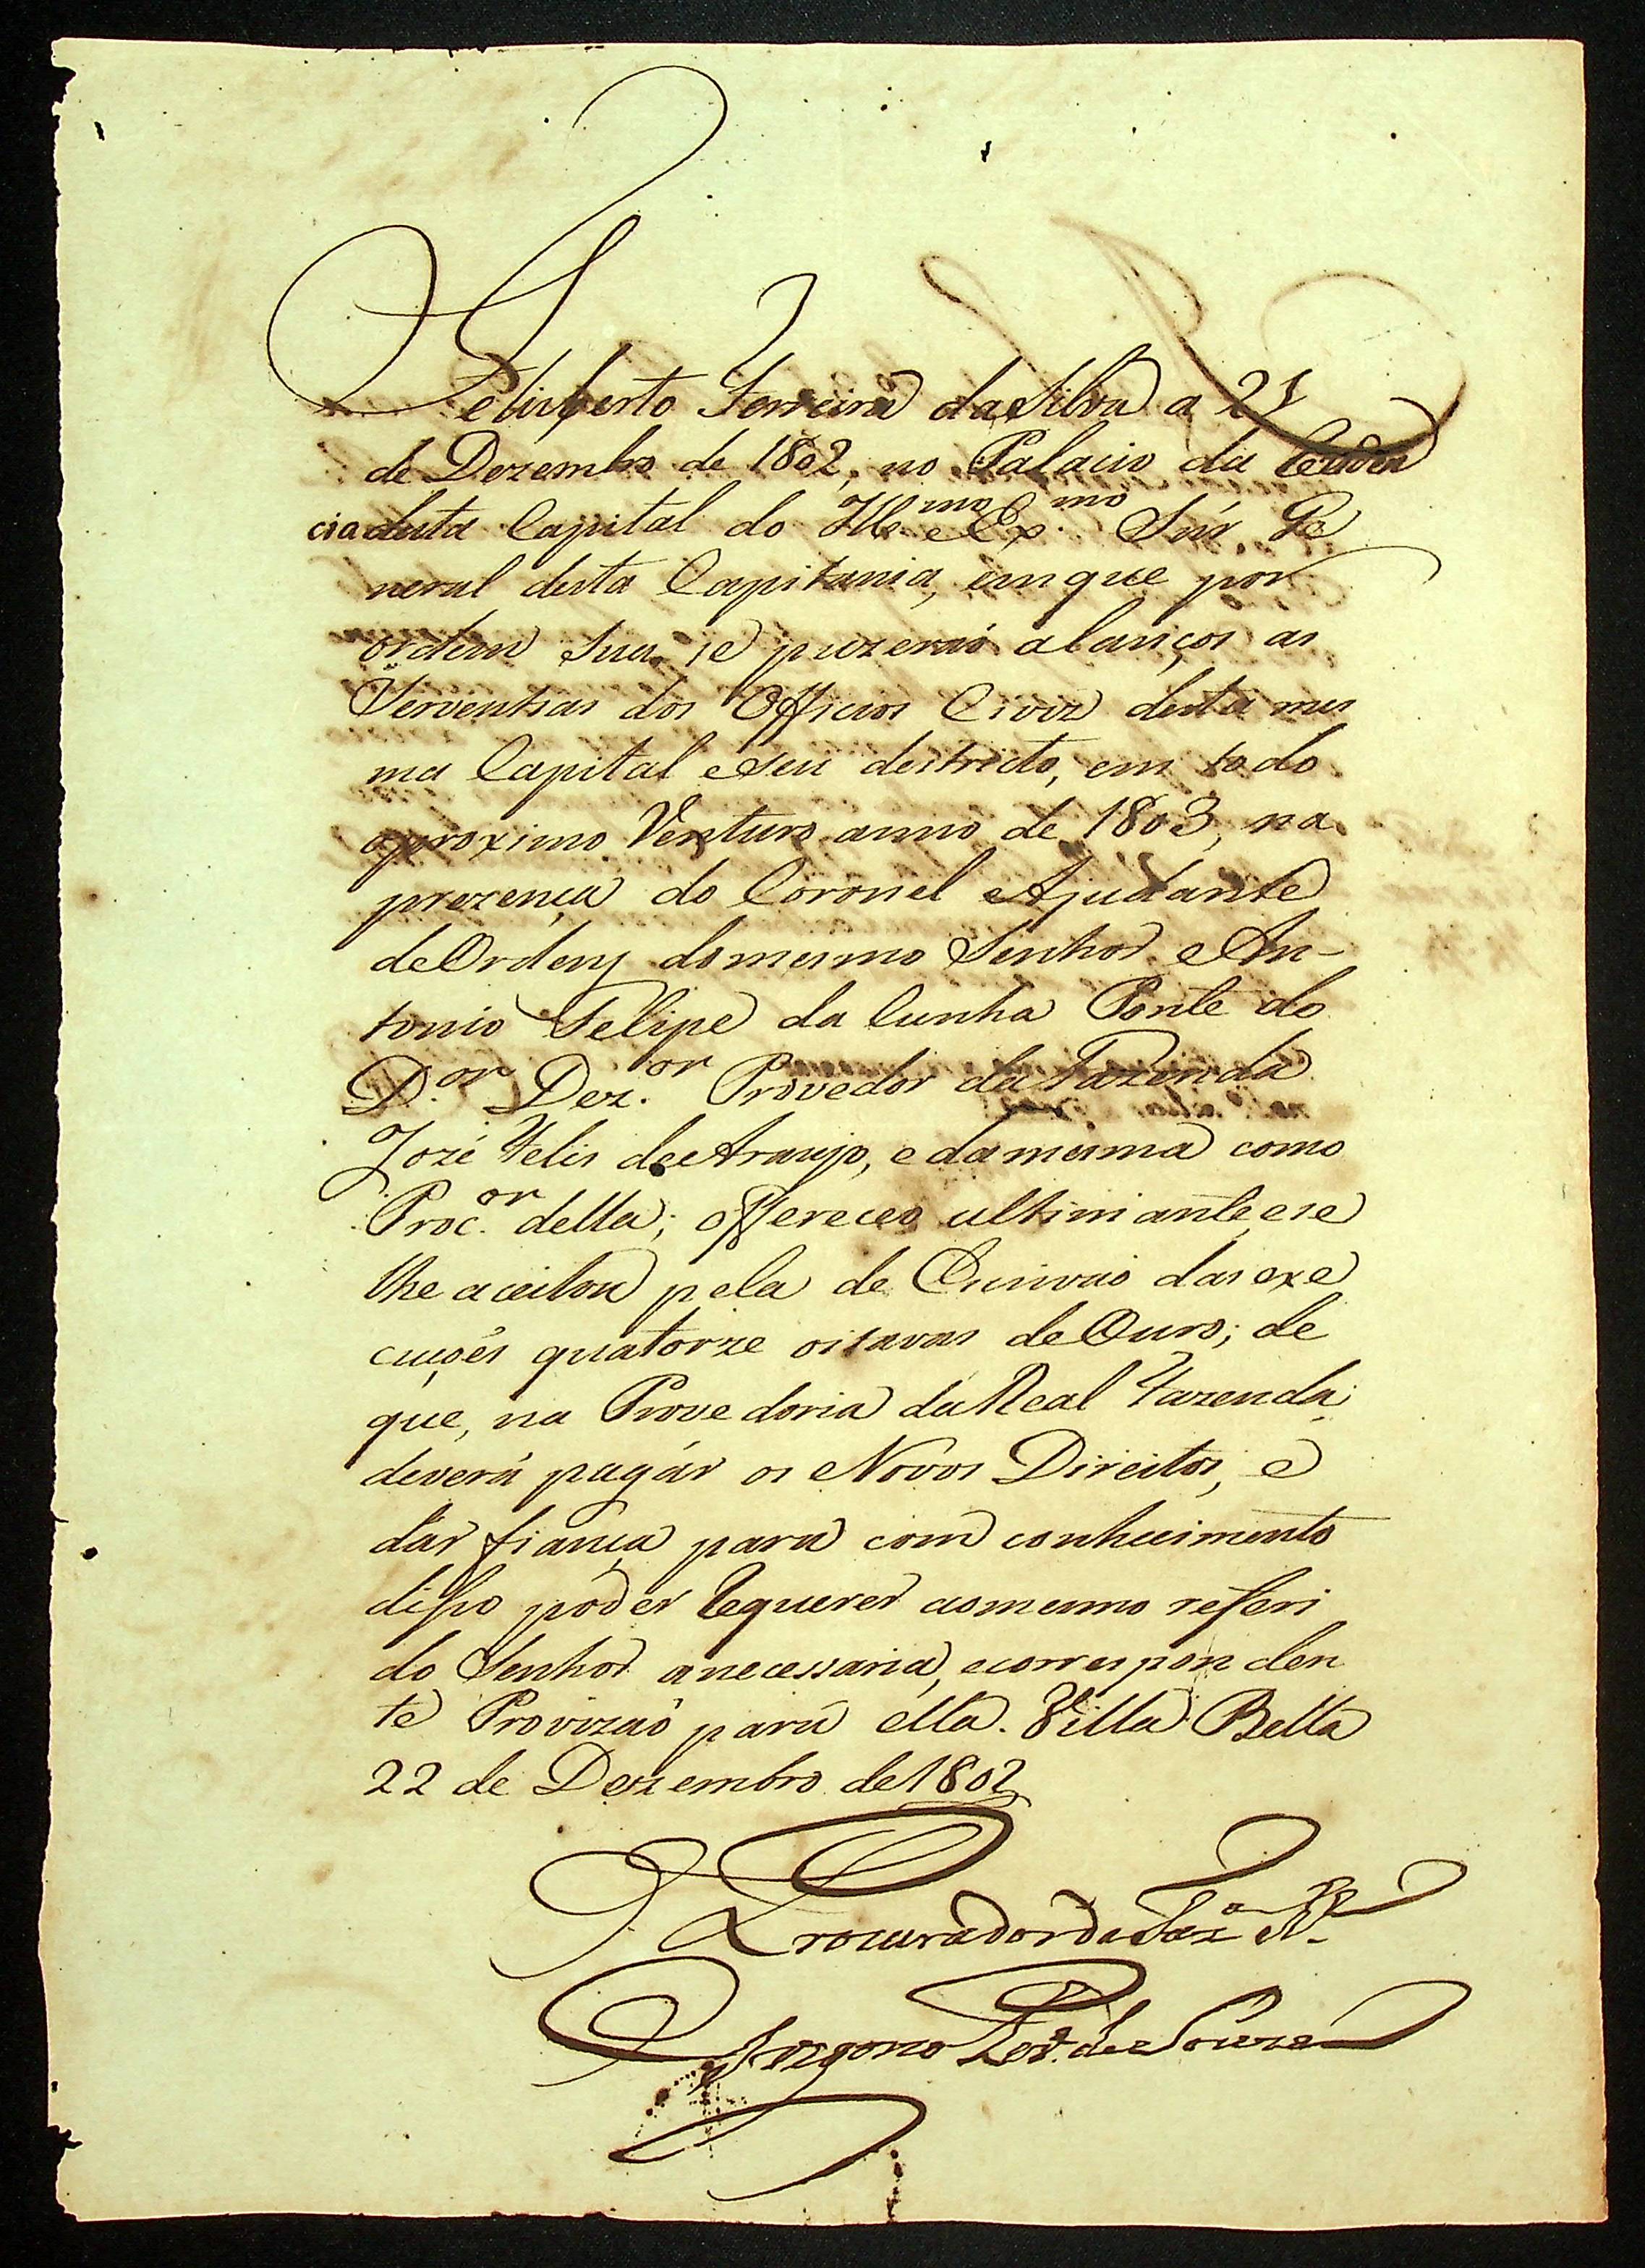 Felisberto Ferreira da Silva a 21
de Dezembro de 1802, no Palacio da Reziden
cia desta Capital do Ill.mo e Ex.mo Snr. Ge
neral desta Capitania, em que por
ordem Sua se puzeraõ a lanços as
Serventias dos Officios Civiz desta mes
ma Capital e seu destricto, em todo
o proximo Venturo anno de 1803, na
prezença do Coronel Ajudante
de Ordens do mesmo Senhor An-
tonio Felipe da Cunha Ponte do
D.or Dez.or Provedor da Fazenda
Jozé Felis de Araujo, e da mesma como
Proc.or della; offereceo ultimamte, e se
lhe aceitou pela de Escrivaõ das exe
cuçoẽs quatorze oitavas de Ouro; de
que, na Provedoria da Real Fazenda
deverá pagár os Novos Direitos, e
dar fiança para com conhecimento
disso podér requerer ao mesmo referi
do Senhor a necessaria, e correspon den
te Provizaõ para élla. Villa Bella
22 de Dezembro de 1802
Procurador da Faz.a R.
de Souza